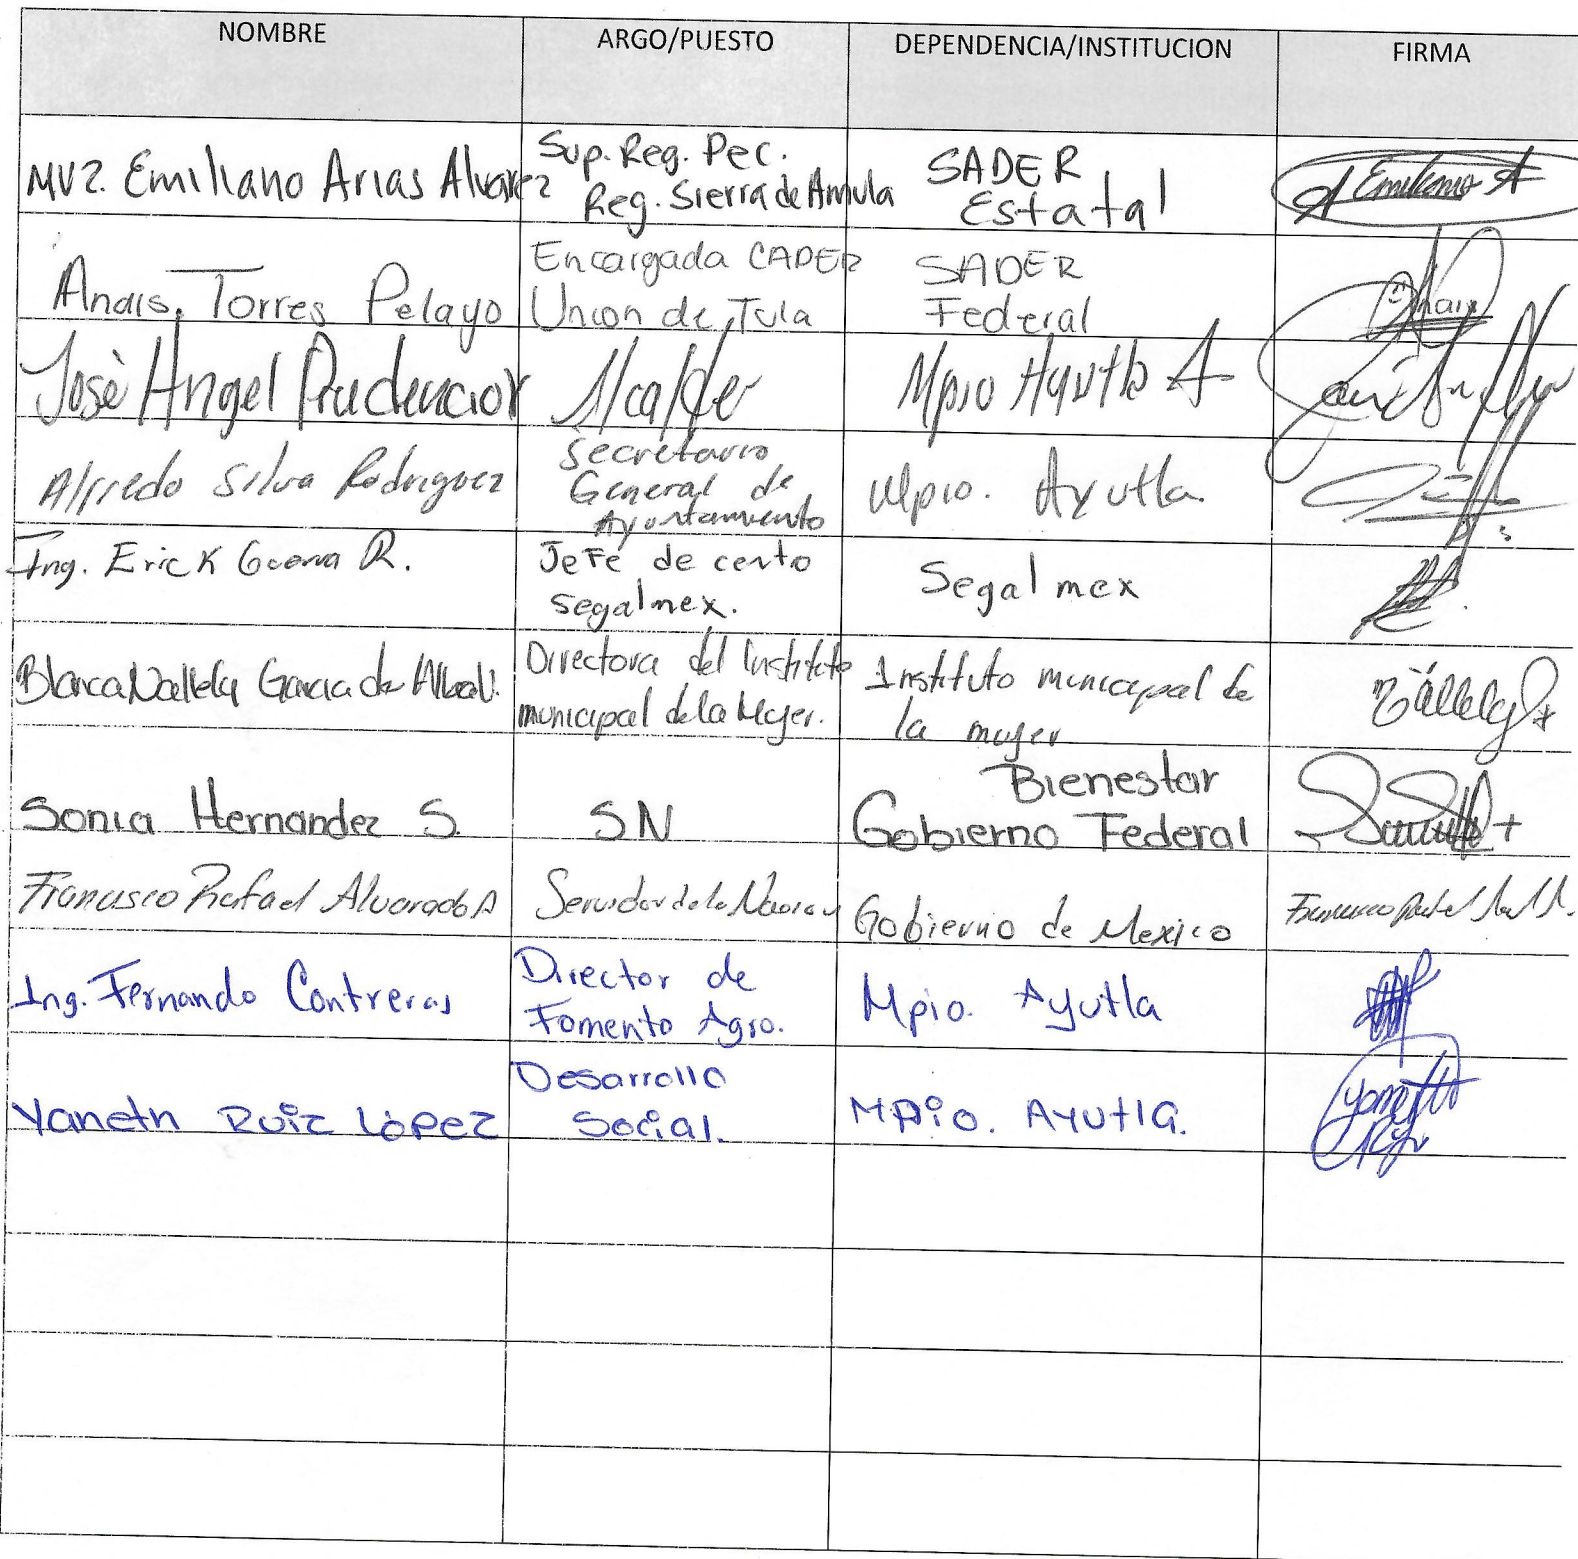 NOMBRE
ARGO/PUESTO
DEPENDENCIA/INSTITUCION
FIRMA
MVZ. Emiliano Arias Alvarez
Sup. Reg. Pec.
Reg. Sierra de Amula
SADER
Estatal
Emiliano A
Anais. Torres Pelayo
Encargada CADER
Union de Tula
SADER
Federal
Anais
José Angel Prudencio
Alcalde
Mpio Ayutla
Alfredo Silva Rodriguez
Secretario
General de
Ayuntamiento
Mpio. Ayutla
Ing. Erick R.
Jefe de cento
segalmex.
Segalmex
Blanca Nallely Garcia de
Directora del Instituto
municipal de la Mujer.
Instituto municipal de
la mujer
Nallely
Sonia Hernandez S.
SN
Bienestar
Gobierno Federal
Francisco Rafael Alvarado A
Servidor de la Nacion
Gobierno de Mexico
Francisco Rafael
Ing. Fernando Contreras
Director de
Fomento Agro.
Mpio. Ayutla
Yaneth Ruiz López
Desarrollo
Social.
MPio. Ayutla.
Yaneth